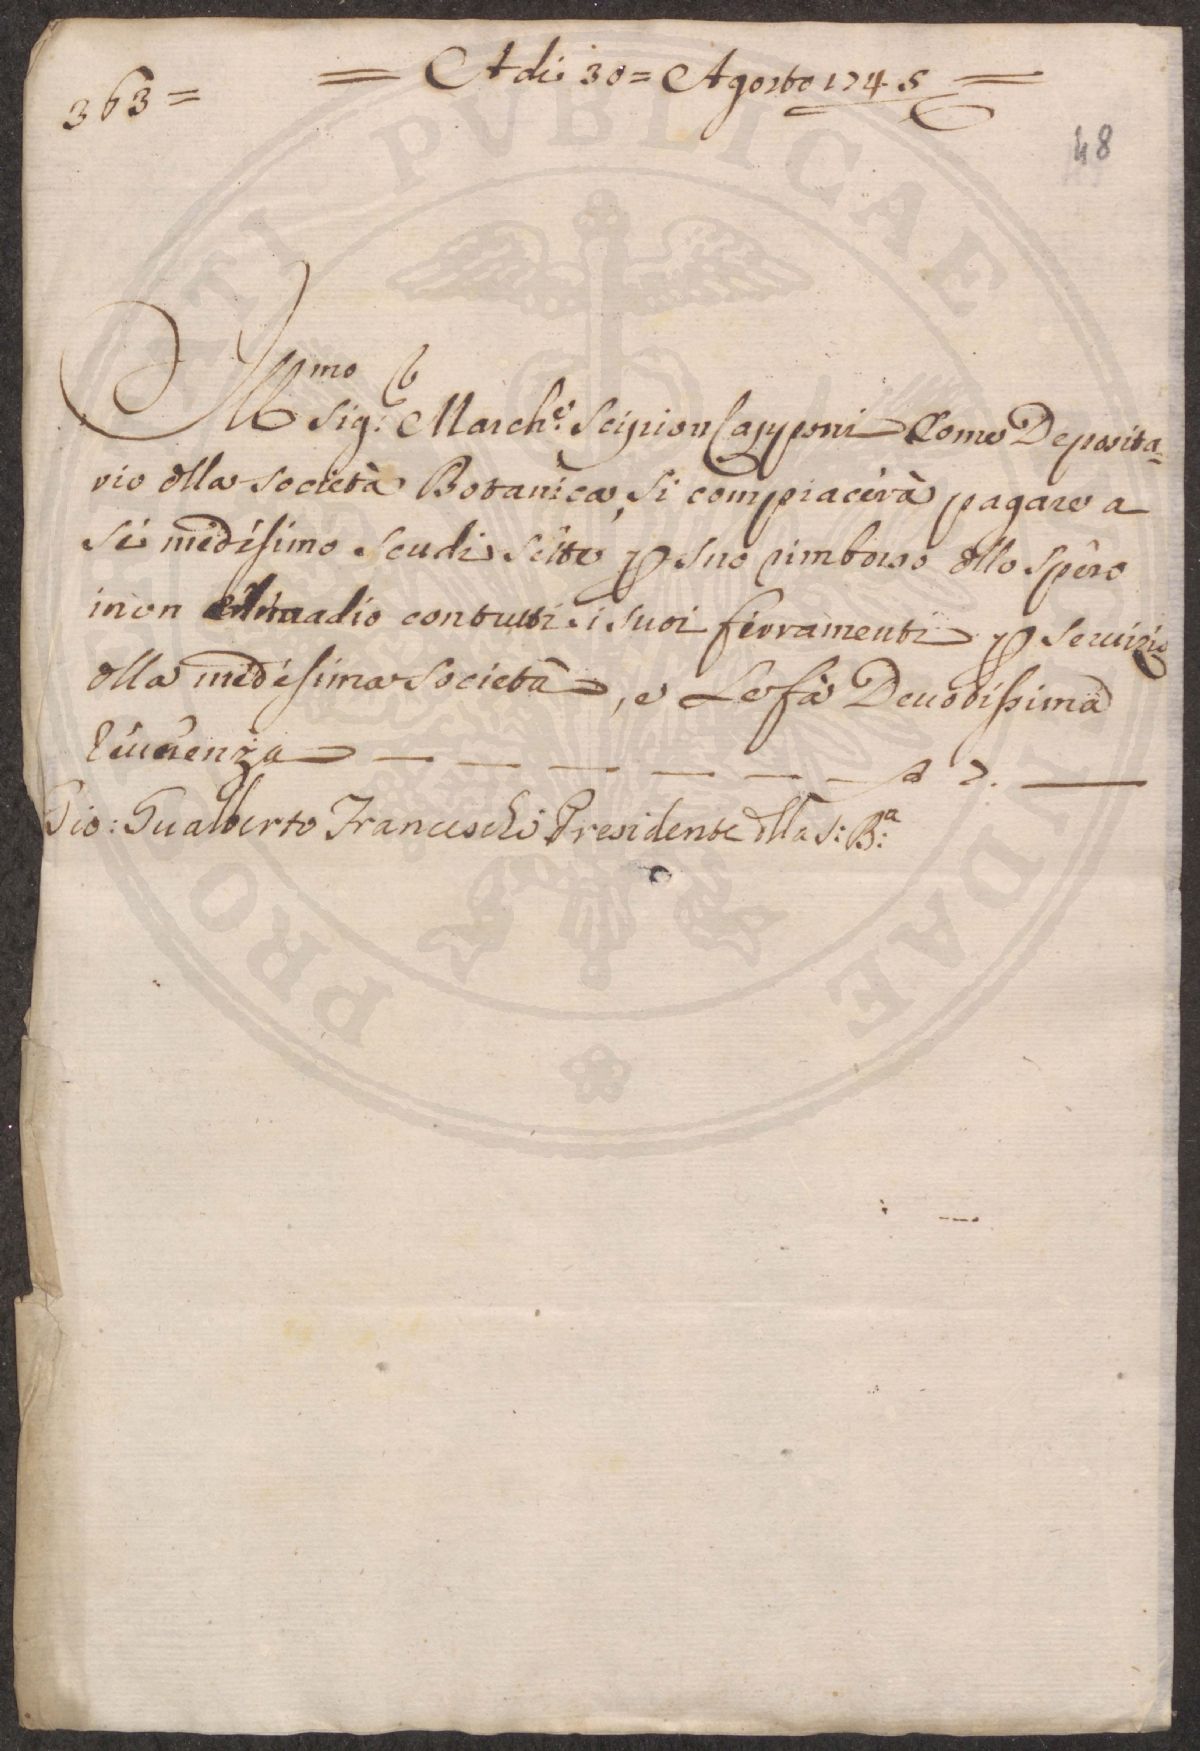 363 =
= Adi 30 = Agosto 1745 =
48
Ill.mo
Sig.r March.e Scipion Capponi Come Deposita=
rio dlla Società Botanica, si compiacerà pagare a
sè medesimo scudi sette p suo rimborso dllo speso
in un con tutti i suoi ferramenti p servizio
dlla medesima Società, e Le fà Devotissima
Reverenza — — — — — — 7. —
Gio: Gualberto Franceschi Presidente dlla S: B:a
PRO VTI PVBLICAE DAE